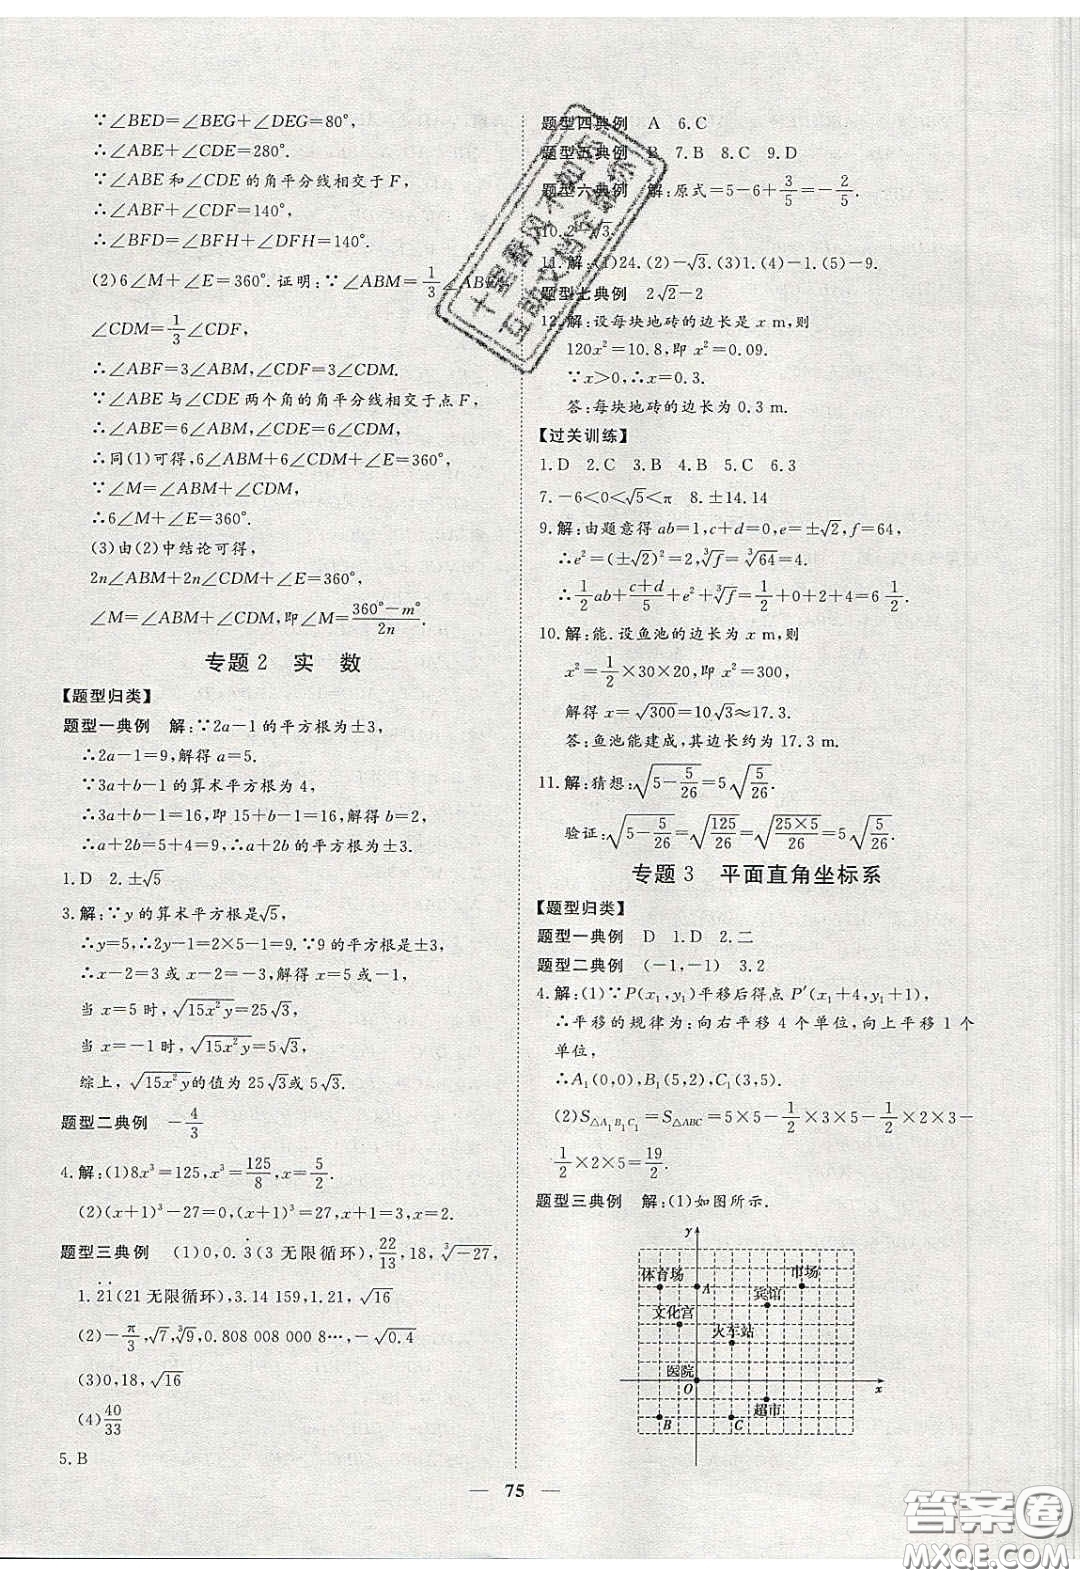 ∵∠BED=∠BEG+∠DEG=80°,
∴∠ABE+∠CDE=280°.
∵∠ABE和∠CDE的角平分线相交于F,
∴∠ABF+∠CDF=140°,
∴∠BFD=∠BFH+∠DFH=140°.
(2)6∠M+∠E=360°.证明:∵∠ABM=1/3∠ABF,
∠CDM=1/3∠CDF,
∴∠ABF=3∠ABM,∠CDF=3∠CDM.
∵∠ABE与∠CDE两个角的角平分线相交于点F,
∴∠ABE=6∠ABM,∠CDE=6∠CDM,
∴同(1)可得,6∠ABM+6∠CDM+∠E=360°.
∵∠M=∠ABM+∠CDM,
∴6∠M+∠E=360°.
(3)由(2)中结论可得,
2n∠ABM+2n∠CDM+∠E=360°,
∠M=∠ABM+∠CDM,即∠M=(360°-m°)/2n.
专题2 实 数
【题型归类】
题型一典例 解:∵2a-1的平方根为±3,
∴2a-1=9,解得a=5.
∵3a+b-1的算术平方根为4,
∴3a+b-1=16,即15+b-1=16,解得b=2,
∴a+2b=5+4=9,∴a+2b的算术平方根为3.
1.D 2.±√5
3.解:∵y的算术平方根是√5,
∴y=5,∴2y-1=2×5-1=9.∵9的平方根是±3,
∴x-2=3或x-2=-3,解得x=5或x=-1.
当x=5时,√(15x²y)=25√3,
当x=-1时,√(15x²y)=5√3,
综上,√(15x²y)的值为25√3或5√3.
题型二典例 -4/3
4.解:(1)8x³=125,x³=125/8,x=5/2.
(2)(x+1)³-27=0,(x+1)³=27,x+1=3,x=2.
题型三典例 (1)0,0.3̇(3无限循环),22/13,18,∛-27,
1.2̇1̇(21无限循环),3.14 159,1.21,√16
(2)-π/3,√7,∛9,0.808 008 000 8…,-√0.4
(3)0,18,√16
(4)40/33
5.B
题型四典例 A 6.C
题型五典例 B 7.B 8.C 9.D
题型六典例 解:原式=5-6+3/5=-2/5.
10.2-√3.
11.解:(1)24.(2)-√3.(3)1.(4)-1.(5)-9.
题型七典例 2√2-2
12.解:设每块地砖的边长是x m,则
120x²=10.8,即x²=0.09.
∵x>0,∴x=0.3.
答:每块地砖的边长为0.3 m.
【过关训练】
1.D 2.C 3.B 4.B 5.C 6.3
7.-6<0<√5<π 8.±14.14
9.解:由题意得ab=1,c+d=0,e=±√2,f=64,
∴e²=(±√2)²=2,∛f=∛64=4.
∴1/2ab+(c+d)/5+e²+∛f=1/2+0+2+4=6 1/2.
10.解:能.设鱼池的边长为x m,则
x²=1/2×30×20,即x²=300,
解得x=√300=10√3≈17.3.
答:鱼池能建成,其边长约为17.3 m.
11.解:猜想:√(5-5/26)=5√(5/26).
验证:√(5-5/26)=√(125/26)=√(25×5/26)=5√(5/26).
专题3 平面直角坐标系
【题型归类】
题型一典例 D 1.D 2.二
题型二典例 (-1,-1) 3.2
4.解:(1)∵P(x₁,y₁)平移后得点P′(x₁+4,y₁+1),
∴平移的规律为:向右平移4个单位,向上平移1个
单位,
∴A₁(0,0),B₁(5,2),C₁(3,5).
(2)S△A₁B₁C₁=S△ABC=5×5-1/2×3×5-1/2×2×3-
1/2×2×5=19/2.
题型三典例 解:(1)如图所示.
y
体育场
A
市场
宾馆
文化宫
火车站
医院
O
x
超市
B
C
75
十里春风不如你
互联文档
答案圈
MXQE.COM